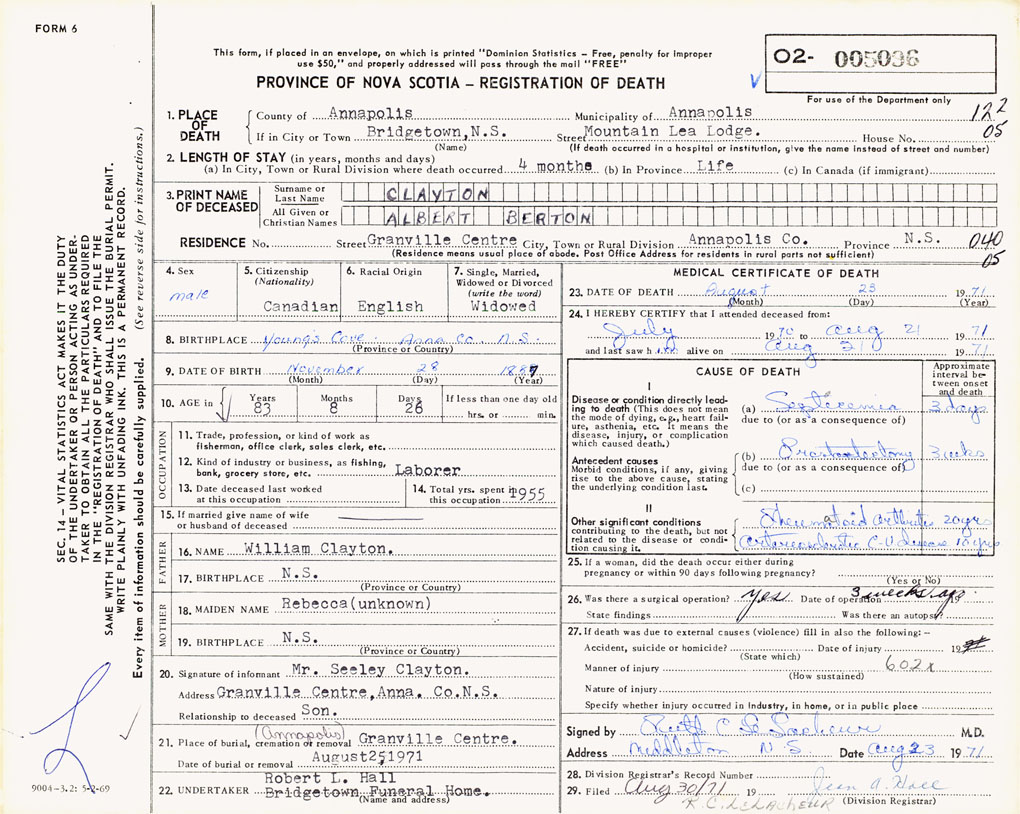 FORM 6
This form, if placed in an envelope, on which is printed "Dominion Statistics – Free, penalty for improper
use $50," and properly addressed will pass through the mail "FREE"
PROVINCE OF NOVA SCOTIA – REGISTRATION OF DEATH
02- 005036
For use of the Department only
122
05
1. PLACE OF DEATH
County of Annapolis Municipality of Annapolis
If in City or Town Bridgetown,N.S. Street Mountain Lea Lodge. House No.
(Name) (If death occurred in a hospital or institution, give the name instead of street and number)
2. LENGTH OF STAY (in years, months and days)
(a) In City, Town or Rural Division where death occurred 4 months (b) In Province Life (c) In Canada (if immigrant)
3. PRINT NAME OF DECEASED
Surname or Last Name CLAYTON
All Given or Christian Names ALBERT BERTON
RESIDENCE No. Street Granville Centre City, Town or Rural Division Annapolis Co. Province N.S.
(Residence means usual place of abode. Post Office Address for residents in rural parts not sufficient)
040
05
4. Sex
male
5. Citizenship
(Nationality)
Canadian
6. Racial Origin
English
7. Single, Married,
Widowed or Divorced
(write the word)
Widowed
8. BIRTHPLACE Young's Cove Anna Co. N.S.
(Province or Country)
9. DATE OF BIRTH November 28 1887
(Month) (Day) (Year)
10. AGE in
Years Months Days If less than one day old
83 8 26 hrs. or min.
OCCUPATION
11. Trade, profession, or kind of work as
fisherman, office clerk, sales clerk, etc.
12. Kind of industry or business, as fishing,
bank, grocery store, etc. Laborer
13. Date deceased last worked
at this occupation
14. Total yrs. spent in
this occupation 1955
15. If married give name of wife
or husband of deceased
FATHER
16. NAME William Clayton.
17. BIRTHPLACE N.S.
(Province or Country)
MOTHER
18. MAIDEN NAME Rebecca(unknown)
19. BIRTHPLACE N.S.
(Province or Country)
20. Signature of informant Mr. Seeley Clayton.
Address Granville Centre,Anna. Co.N.S.
Relationship to deceased Son.
(Annapolis)
21. Place of burial, cremation or removal Granville Centre.
Date of burial or removal August25,1971
Robert L. Hall
22. UNDERTAKER Bridgetown Funeral Home.
(Name and address)
MEDICAL CERTIFICATE OF DEATH
23. DATE OF DEATH August 23 1971
(Month) (Day) (Year)
24. I HEREBY CERTIFY that I attended deceased from:
July 1970 to Aug 21 1971
and last saw him alive on Aug 21 1971
CAUSE OF DEATH
Approximate
interval be-
tween onset
and death
I
Disease or condition directly lead-
ing to death (This does not mean
the mode of dying, e.g., heart fail-
ure, asthenia, etc. It means the
disease, injury, or complication
which caused death.)
(a) Septicemia 3 days
due to (or as a consequence of)
Antecedent causes
Morbid conditions, if any, giving
rise to the above cause, stating
the underlying condition last.
(b) Prostatectomy 3 weeks
due to (or as a consequence of)
(c)
II
Other significant conditions
contributing to the death, but not
related to the disease or condi-
tion causing it.
Rheumatoid arthritis 20 yrs
C-V disease 10 yrs
25. If a woman, did the death occur either during
pregnancy or within 90 days following pregnancy?
(Yes or No)
26. Was there a surgical operation? Yes Date of operation 3 weeks ago 19
State findings Was there an autopsy?
27. If death was due to external causes (violence) fill in also the following: –
Accident, suicide or homicide? Date of injury 19
(State which)
Manner of injury 602x
(How sustained)
Nature of injury
Specify whether injury occurred in Industry, in home, or in public place
Signed by Ruth C La Lacheur M.D.
Address Middleton N S Date Aug 23 1971
28. Division Registrar's Record Number
29. Filed Aug 30/71 19 Jean A. Hall
R.C. LELACHEUR (Division Registrar)
SEC. 14 – VITAL STATISTICS ACT MAKES IT THE DUTY
OF THE UNDERTAKER OR PERSON ACTING AS UNDER-
TAKER TO OBTAIN ALL THE PARTICULARS REQUIRED
IN THE "REGISTRATION OF DEATH" AND TO FILE THE
SAME WITH THE DIVISION REGISTRAR WHO SHALL ISSUE THE BURIAL PERMIT.
WRITE PLAINLY WITH UNFADING INK. THIS IS A PERMANENT RECORD.
Every item of information should be carefully supplied. (See reverse side for instructions.)
9004-3.2: 5-2-69